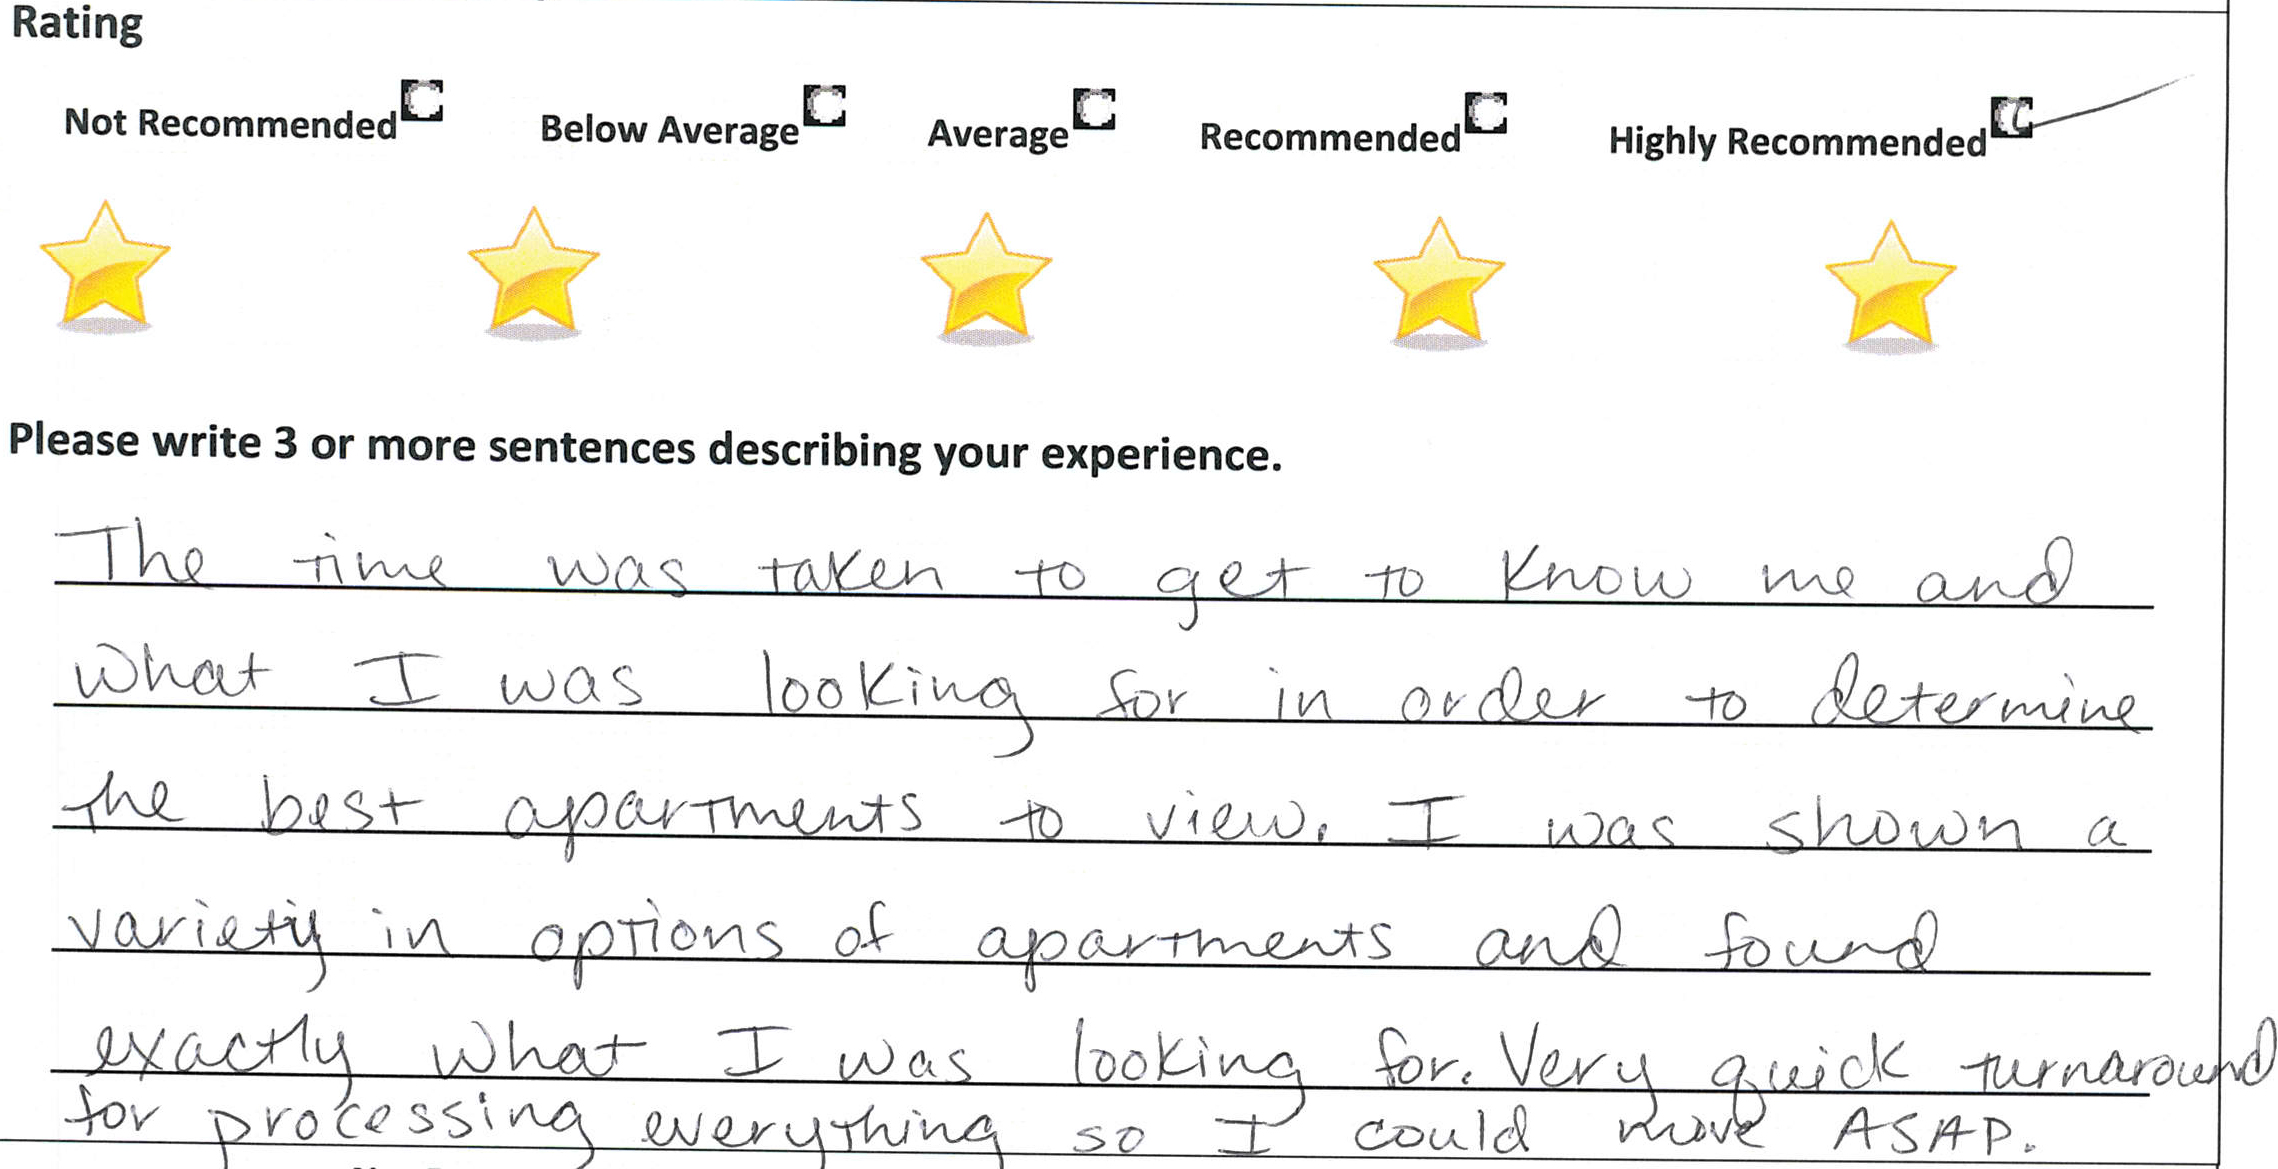 Rating
Not Recommended Below Average Average Recommended Highly Recommended
Please write 3 or more sentences describing your experience.
The time was taken to get to know me and
what I was looking for in order to determine
the best apartments to view. I was shown a
variety in options of apartments and found
exactly what I was looking for. Very quick turnaround
for processing everything so I could move ASAP.